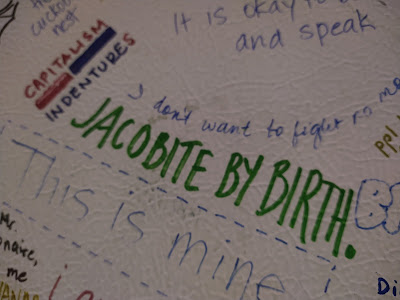 cuckoo
nest
It is okay to
and speak
CAPITALISM
INDENTURES
I don't want to fight no mo
JACOBITE BY BIRTH.
ppl
This is mine i
Mr.
me
Di